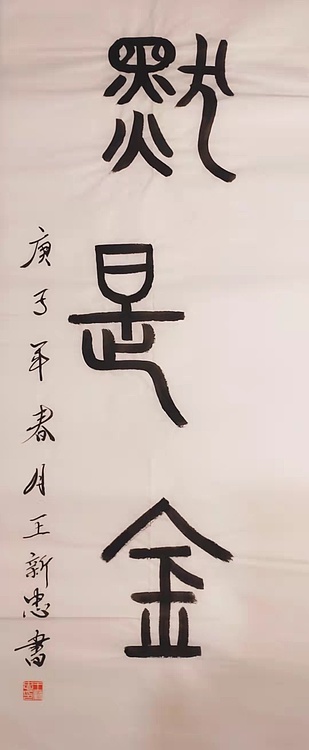 默是金
庚子年春月王新忠書